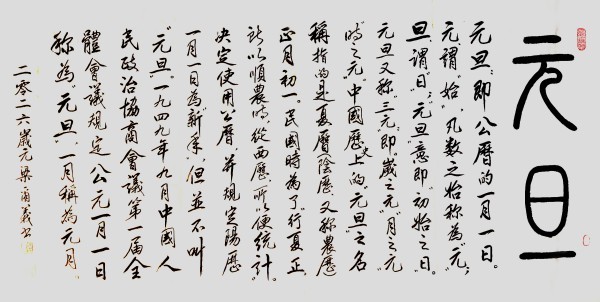 元旦
元旦,即公曆的一月一日。
元謂"始",凡數之始稱為"元";
旦謂"日";"元旦"意即"初始之日"。
元旦又稱"三元",即"歲之元""月之元"
"時之元"。中國歷史上的"元旦"之名
稱指的是夏曆陰歷,又称農歷
正月初一。民國時為了"行夏正,
所以順農時,從西歷,所以便統計"。
決定使用公曆,并規定陽歷
一月一日為"新年",但並不叫
"元旦"。一九四九年九月中國人
民政治協商會議第一届全
體會議規定公元一月一日
称為"元旦",一月稱為"元月"。
二零二六歲元梁